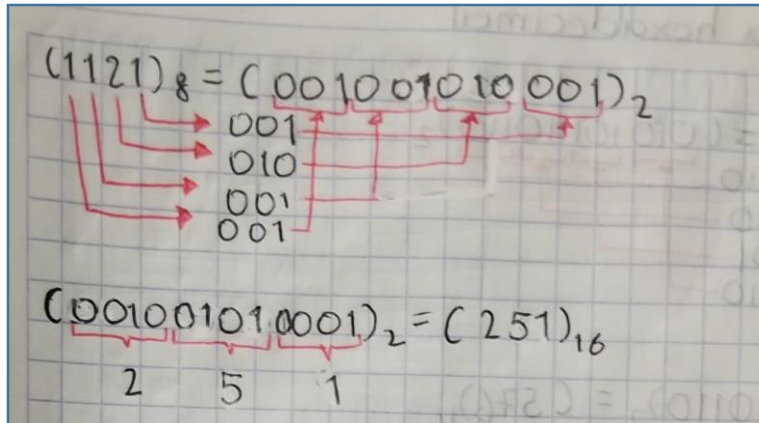 (1121)8 = (001001010001)2
001
010
001
001
(001001010001)2 = (251)16
2 5 1